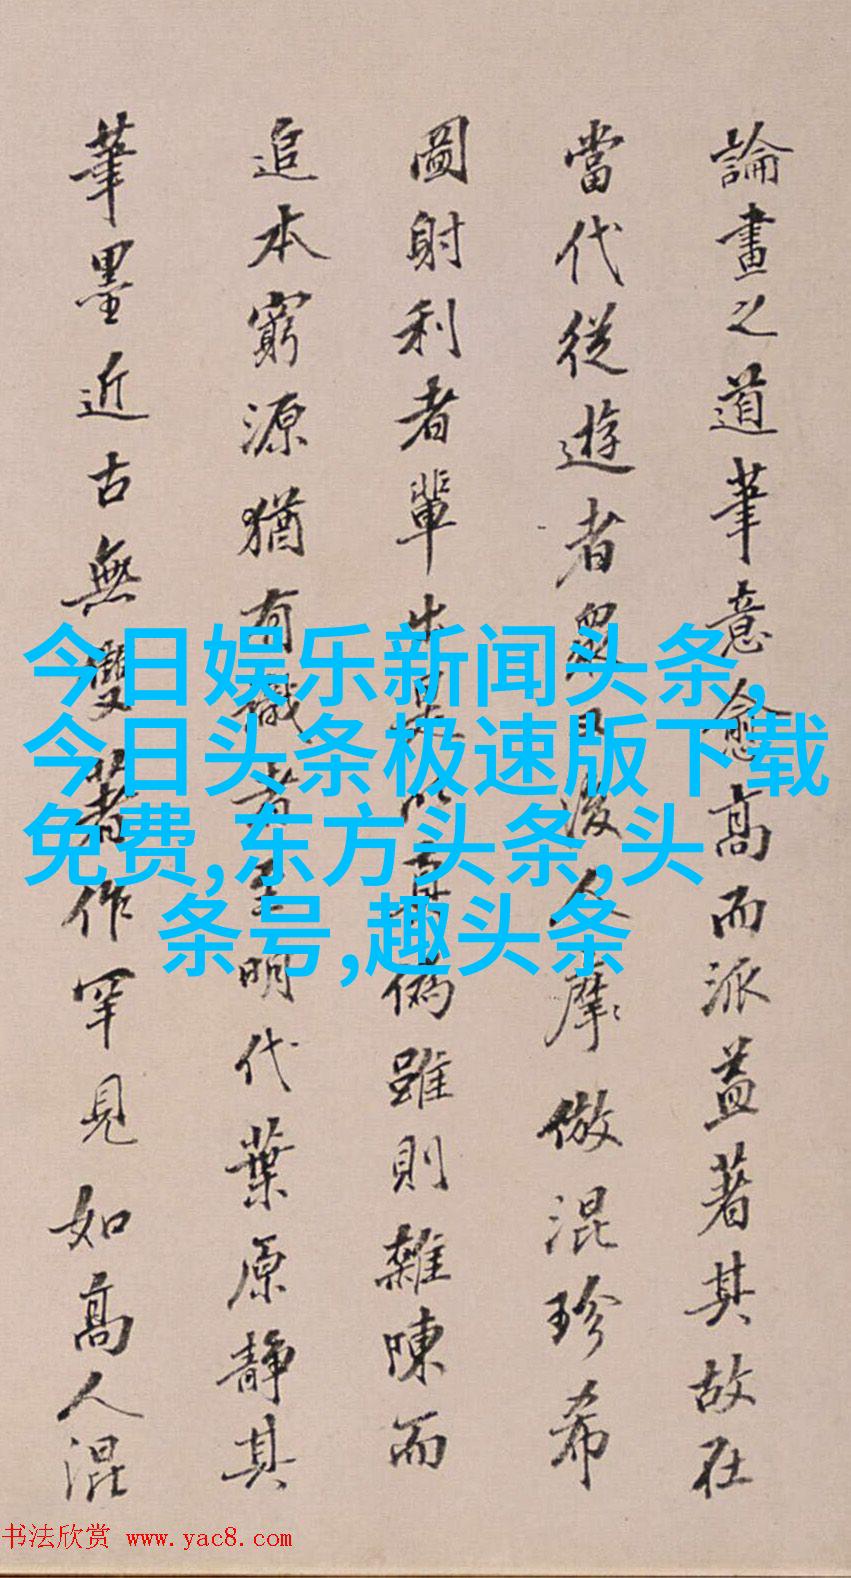 論畫之道筆意愈高而派益著其故在
當代從遊者眾且後人摩倣混珍希
圖射利者輩出是以真偽雖則雜陳而
追本窮源猶有識者至明代葉原靜其
筆墨近古無雙著作罕見如高人混
今日娱乐新闻头条,
今日头条极速版下载
免费,东方头条,头
条号,趣头条
书法欣赏 www.yac8.com